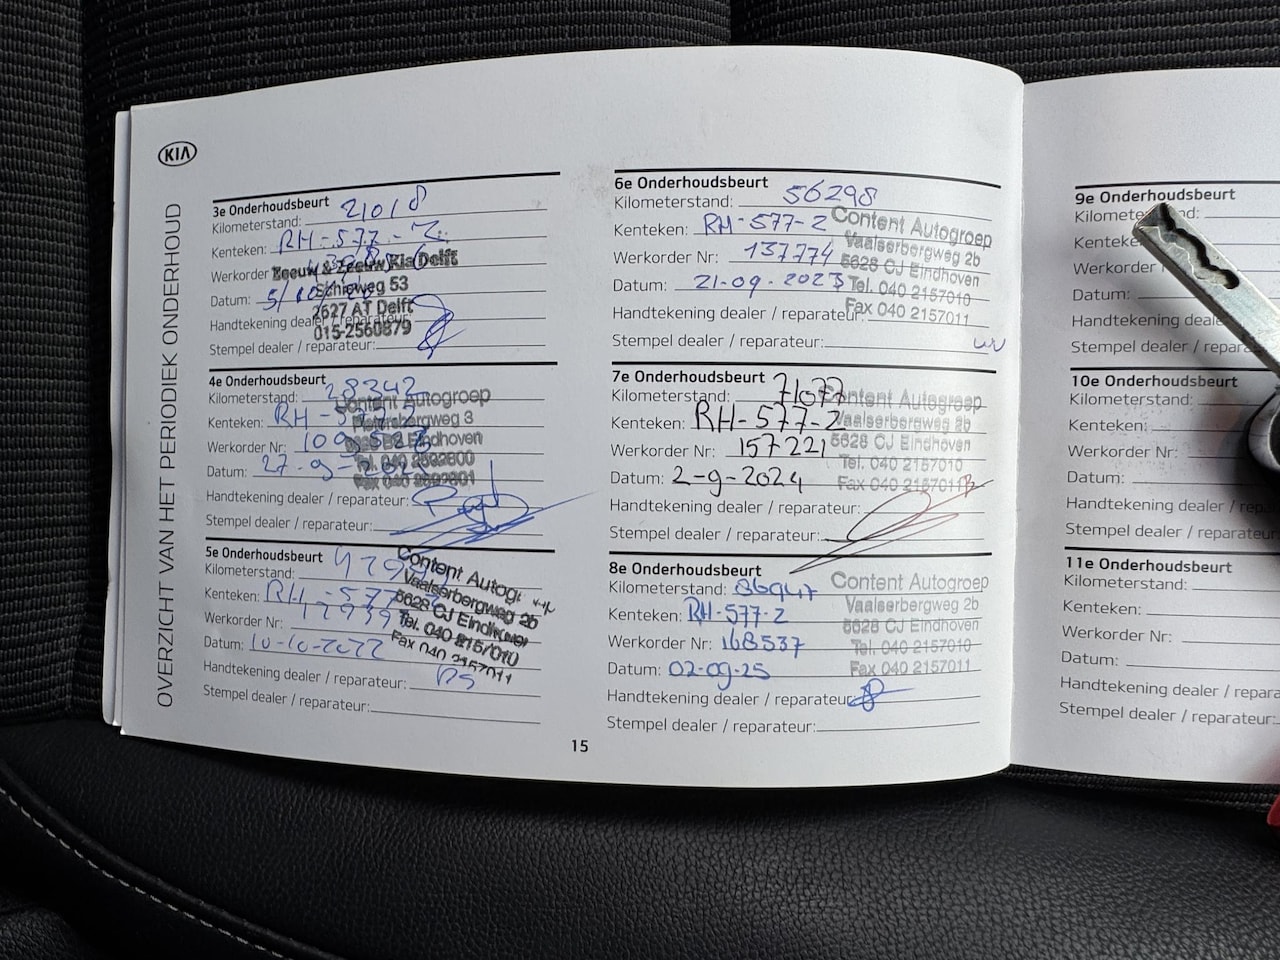 KIA
OVERZICHT VAN HET PERIODIEK ONDERHOUD
3e Onderhoudsbeurt
Kilometerstand: 21018
Kenteken: RH-577-Z
Werkorder
Zeeuw & Zeeuw Kia Delft
Schieweg 53
Datum: 5/10/
2627 AT Delft
Handtekening dealer / reparateur:
015-2560879
Stempel dealer / reparateur:
4e Onderhoudsbeurt
Kilometerstand: 28342
Content Autogroep
Kenteken: RH-577-Z
Werkorder Nr:
Eindhoven
Datum: 27-9-
Handtekening dealer / reparateur:
Stempel dealer / reparateur:
5e Onderhoudsbeurt
Kilometerstand:
Content Autogr
Kenteken: RH-577
Vaalserbergweg 2b
Werkorder Nr:
5628 CJ Eindhoven
Tel. 040 2157010
Datum: 10-10-2022
Fax 040 2157011
Handtekening dealer / reparateur:
Stempel dealer / reparateur:
6e Onderhoudsbeurt
Kilometerstand: 56298
Kenteken: RH-577-Z
Content Autogroep
Vaalserbergweg 2b
Werkorder Nr: 137774
5628 CJ Eindhoven
Datum: 21-09-2023
Tel. 040 2157010
Fax 040 2157011
Handtekening dealer / reparateur:
Stempel dealer / reparateur:
7e Onderhoudsbeurt
Kilometerstand: 71077
Content Autogroep
Kenteken: RH-577-Z
Vaalserbergweg 2b
Werkorder Nr: 157221
5628 CJ Eindhoven
Tel. 040 2157010
Datum: 2-9-2024
Fax 040 2157011
Handtekening dealer / reparateur:
Stempel dealer / reparateur:
8e Onderhoudsbeurt
Kilometerstand: 86947
Content Autogroep
Kenteken: RH-577-Z
Vaalserbergweg 2b
5628 CJ Eindhoven
Werkorder Nr: 168537
Tel. 040 2157010
Datum: 02-09-25
Fax 040 2157011
Handtekening dealer / reparateur:
Stempel dealer / reparateur:
15
9e Onderhoudsbeurt
Datum:
Handtekening deale
Stempel dealer / repara
10e Onderhoudsbeurt
Kilometerstand:
Kenteken:
Werkorder Nr:
Datum:
Handtekening dealer / re
Stempel dealer / reparate
11e Onderhoudsbeurt
Kilometerstand:
Kenteken:
Werkorder Nr:
Datum:
Handtekening dealer / repara
Stempel dealer / reparateur: